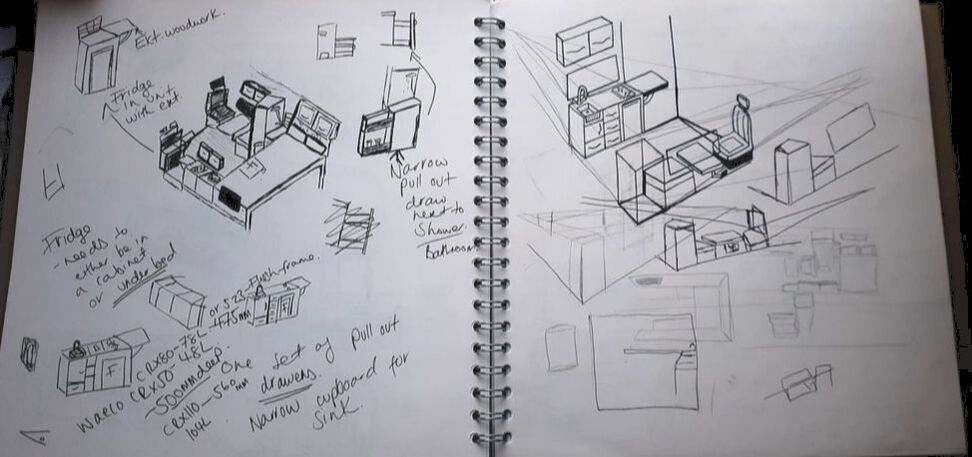 Ext. woodwork.
Fridge
in unit
with ext
Narrow
pull out
draw
next to
Shower.
Bathroom
Fridge
- needs to
either be in
a cabinet
or under bed
or 525 - Flush frame.
475mm
F
F
F
Waeco CRX80 - 78L
CRX50 - 48L
- 500mm deep.
CRX110 - 560mm
104L
One set of pull out
drawers.
Narrow cupboard for
sink.